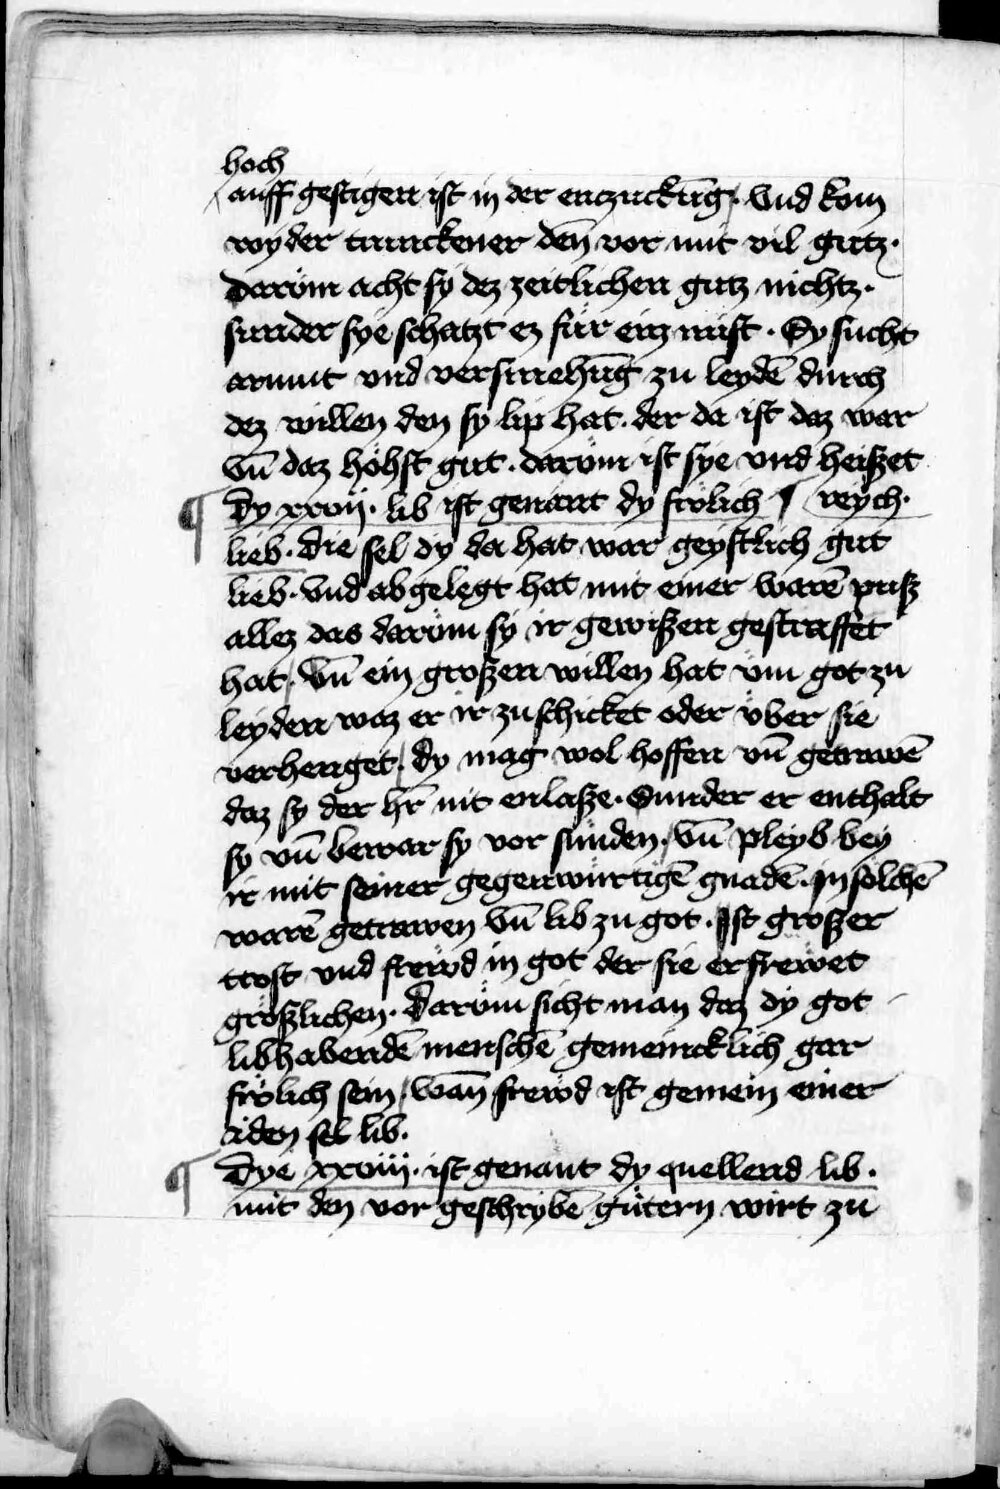 hoch
auff gestigen ist in der enczuckūg. Vnd kom
wyder trunckener den̄ vor mit vil gutz.
daröm acht sy dez zeitlichen gutz nichtz.
sunder sye schatzt ez für ein mist. Sy sucht
armut vnd versmehūg zu leydē durch
dez willen den sy lip hat. der da ist daz war
vn̄ daz höhst gut. daröm ist sye vnd heiszet
Dy xxvij. lib ist genant dy frölich reych.
lieb. Die sel dy da hat war geystlich gut
lieb. vnd abgelegt hat mit einer warē pusz
allez das daröm sy ir gewiszen gestraffet
hat. Vn̄ ein groszen willen hat üm got zu
leyden waz er ir zu schicket oder über sie
verhenget, dy mag wol hoffen vn̄ getrawē
daz sy der hr̄ nit enlasze. Sunder er enthalt
sy vn̄ bewar sy vor sünden. Vn̄ pleyb bey
ir mit seiner gegenwürtigē gnadē. In sölchē
warē getrawen vn̄ lib zu got. Ist groszer
trost vnd frewd in got der sie erfrewet
gröszlichen. Daröm sicht man daz dy got
libhabendē menschē gemeincklich gar
frölich sein, wan̄ frewd ist gemein einer
iden sel lib.
Dye xxviij. ist genant dy quellend lib.
mit den vor geschrybē gütern wirt zu